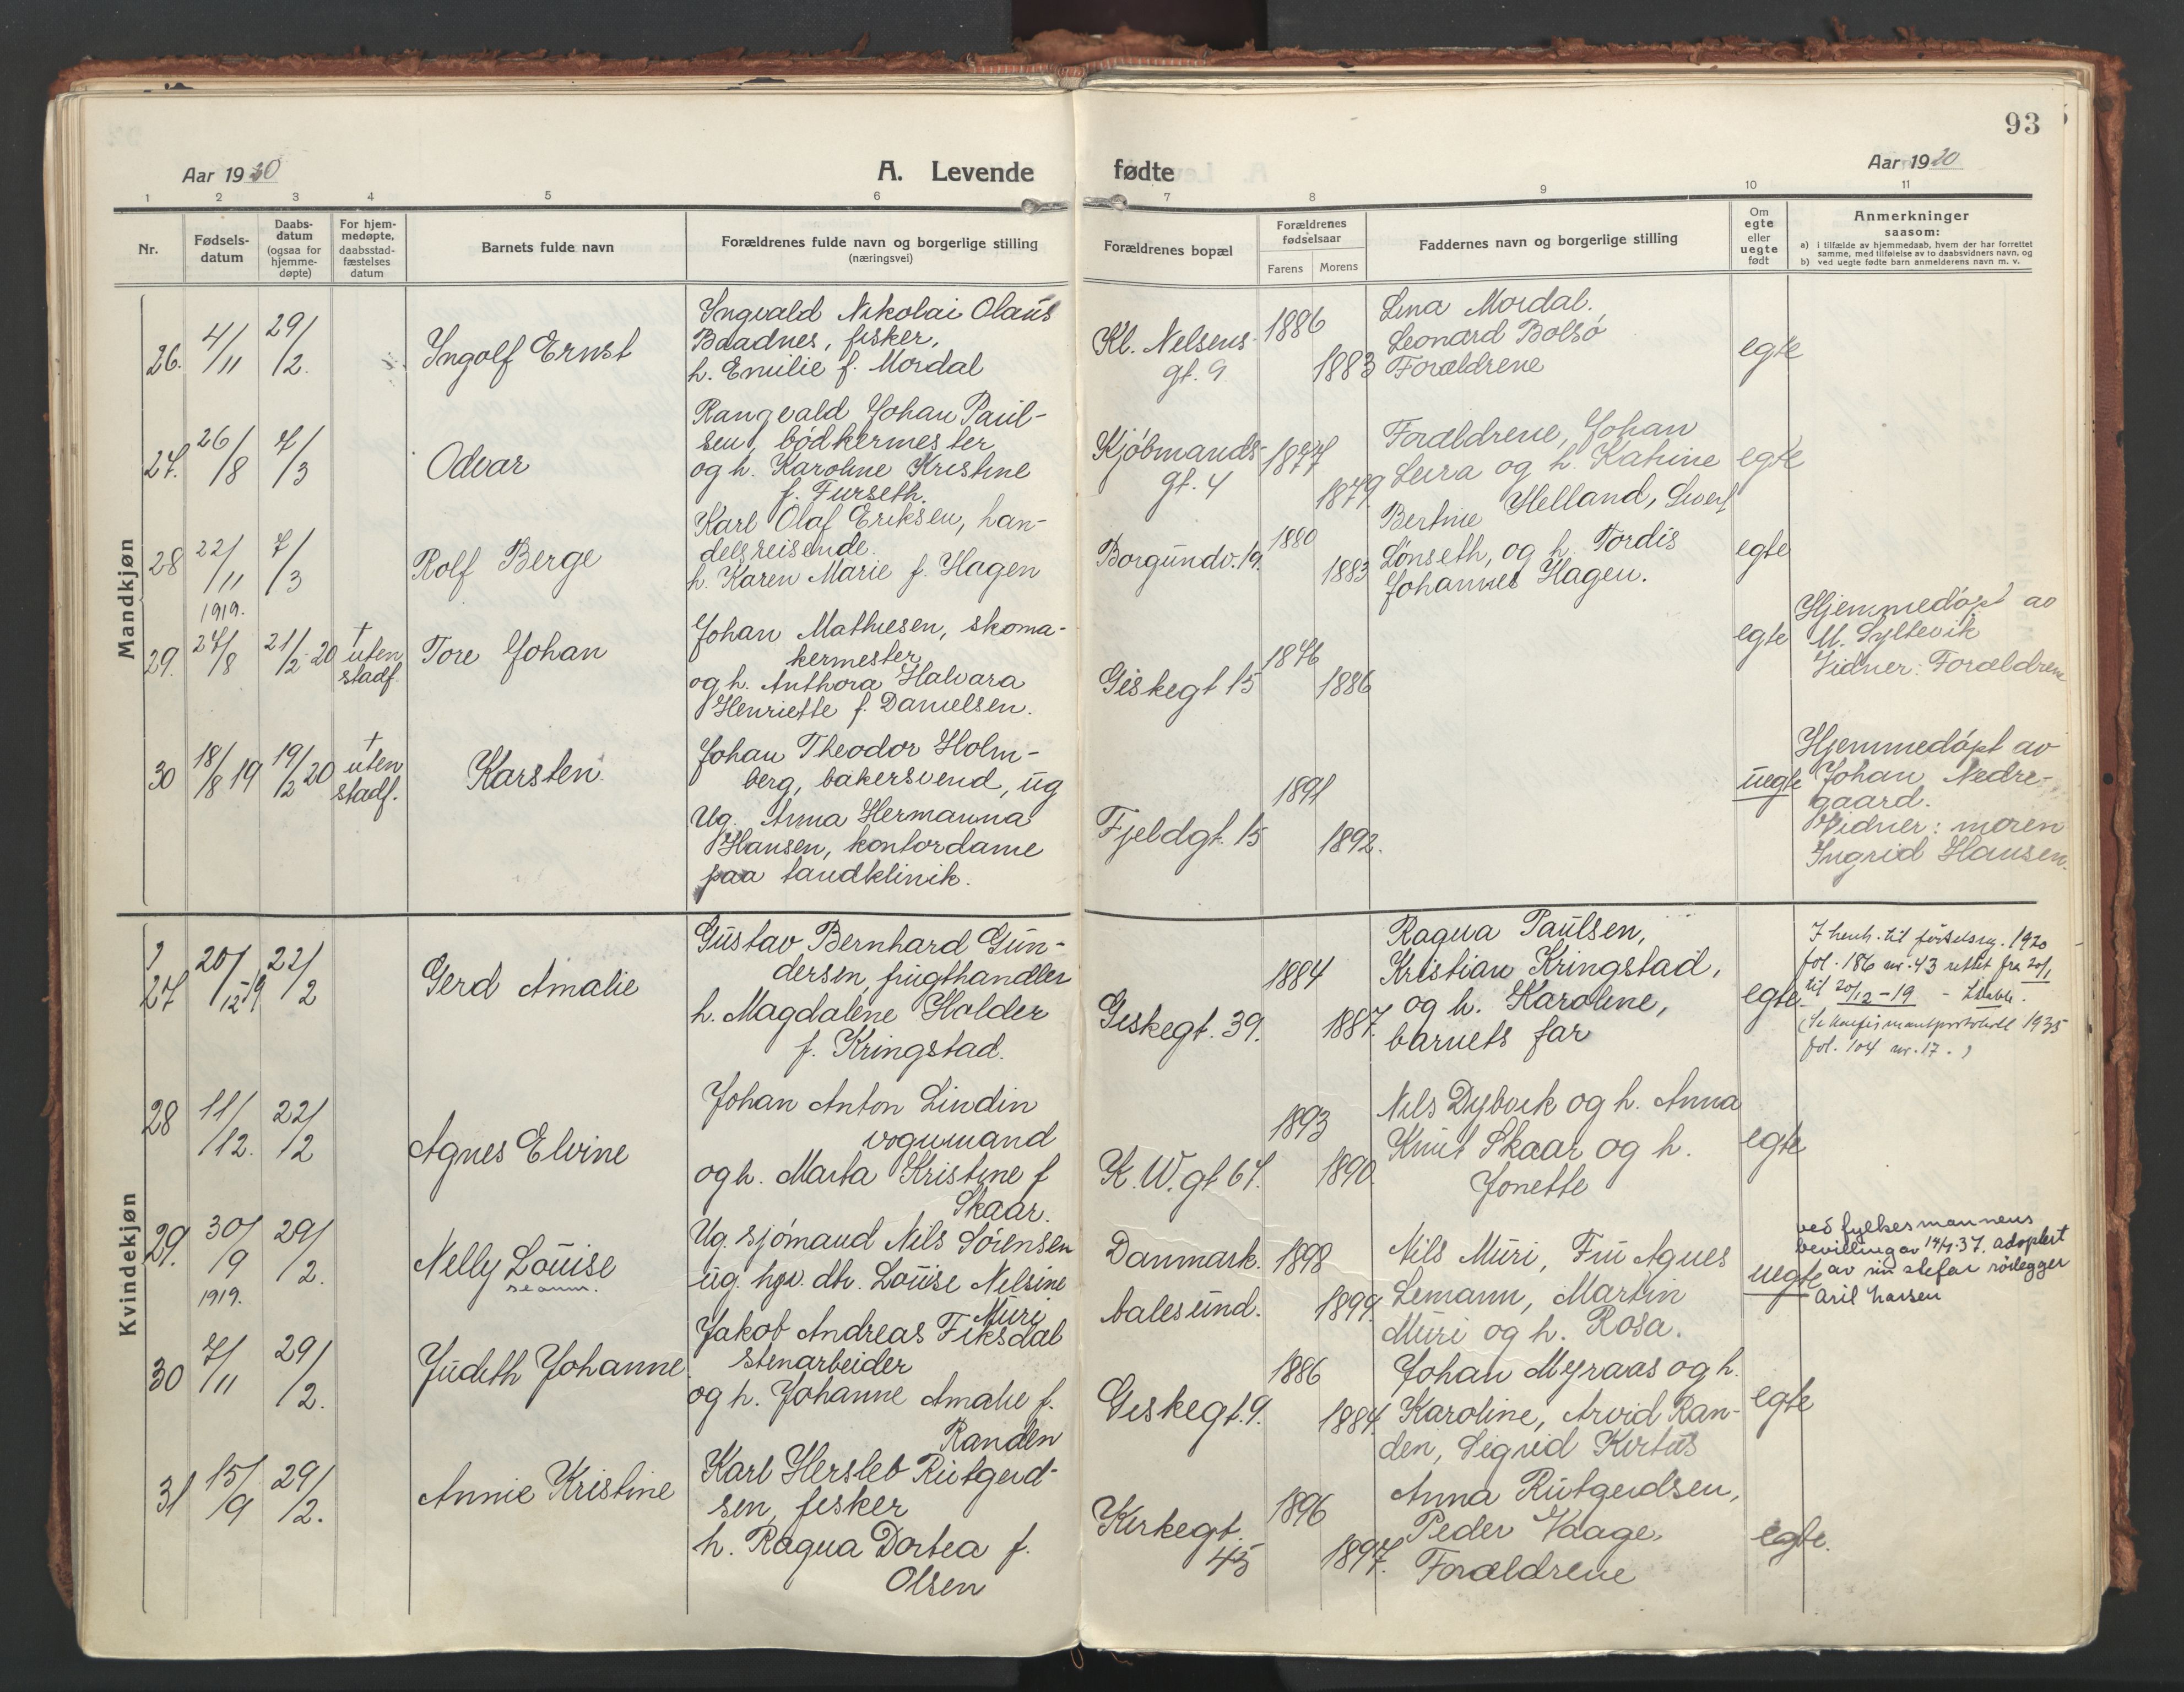 93
Aar 1920
A. Levende fødte
Aar 1920
1 2 3 4 5 6 7 8 9 10 11
Nr.
Fødsels-
datum
Daabs-
datum
(ogsaa for
hjemme-
døpte)
For hjem-
medøpte,
daabsstad-
fæstelses
datum
Barnets fulde navn
Forældrenes fulde navn og borgerlige stilling
(næringsvei)
Forældrenes bopæl
Forældrenes
fødselsaar
Farens Morens
Faddernes navn og borgerlige stilling
Om
egte
eller
uegte
født
Anmerkninger
saasom:
a) i tilfælde av hjemmedaab, hvem der har forrettet
samme, med tilføielse av to daabsvidners navn, og
b) ved uegte fødte barn anmelderens navn m. v.
Mandkjøn
26. 4/11 29/2. Ingolf Ernst
Ingvald Nikolai Olaus
Baadnes, fisker,
h. Emilie f. Mordal
Kl. Nelsens
gt. 9
1886
1883
Lina Mordal.
Leonard Bolsö
Forældrene
egte
27. 26/8 7/3 Odvar
Rangvald Johan Paul-
sen, bödkermester
og h. Karoline Kristine
f. Furseth.
Kjöbmands-
gt. 4
1877
1879
Forældrene, Johan
Leira og h. Katrine
egte
28 22/11 7/3 Rolf Berge
1919.
Karl Olaf Eriksen, han-
delsreisende.
h. Karen Marie f. Hagen
Borgundv. 19.
1880
1883
Bertine Helland, Sivert
Lönseth, og h. Tordis
Johannes Hagen.
egte
29. 27/8 21/2-20 † uten
stadf.
Tore Johan
Johan Mathiesen, skoma-
kermester
og h. Anthora Halvara
Henriette f. Danielsen.
Giskegt 15
1876
1886
egte
Hjemmedöpt av
M. Syltevik
Vidner: Forældrene
30 18/8 19 19/2 20 † uten
stadf.
Karsten.
Johan Theodor Holm-
berg, bakersvend, ug
Ug. Anna Hermanna
Hansen, kontordame
paa tandklinik.
Fjeldgt. 15
1891
1892.
uegte
Hjemmedöpt av
Johan Nedre-
gaard.
Vidner: moren
Ingrid Hansen.
Kvindekjøn
27 20/12-19 22/2 Gerd Amalie
Gustav Bernhard Gun-
dersen, frugthandler
h. Magdalene Halder
f. Kringstad.
Giskegt. 39.
1884
1887.
Ragna Paulsen,
Kristian Kringstad,
og h. Karoline,
barnets far
egte
I henh. til födselsreg. 1920
fol. 186 nr. 43 rettet fra 20/1
til 20/12-19
(Se konfirmantprotokoll 1935
fol. 104 nr. 17.)
28 11/12. 22/2 Agnes Elvine
Johan Anton Lindin
vognmand
og h. Marta Kristine f
Skaar.
K. W. gt 67.
1893
1890.
Nils Dybvik og h. Anna
Knut Skaar og h.
Jonette
egte
29. 30/9 29/2. Nelly Louise
1919. se anm.
Ug. sjömand Nils Sörensen
ug. hgv. dtr. Louise Nelsine
Muri
Danmark.
balesund.
1898
1899.
Nils Muri, Fru Agnes
Lemann, Martin
Muri og h. Rosa.
uegte
ved fylkesmannens
bevilling av 14/7.37. adoptert
av sin stefar rörlegger
Aril Larsen
30 7/11 29/2. Judith Johanne
Jakob Andreas Fiksdal
Stenarbeider
og h. Johanne Amalie f.
Randen
Giskegt. 9.
1886
1884.
Johan Myraas og h.
Karoline, Arvid Ran-
den, Sigrid Kirtus
egte
31 15/9 29/2. Annie Kristine
Karl Hersleb Rutgerd-
sen, fisker
h. Ragna Dortea f.
Olsen
Kirkegt.
45
1896
1897.
Anna Rutgerdsen,
Peder Vaage,
Forældrene
egte.